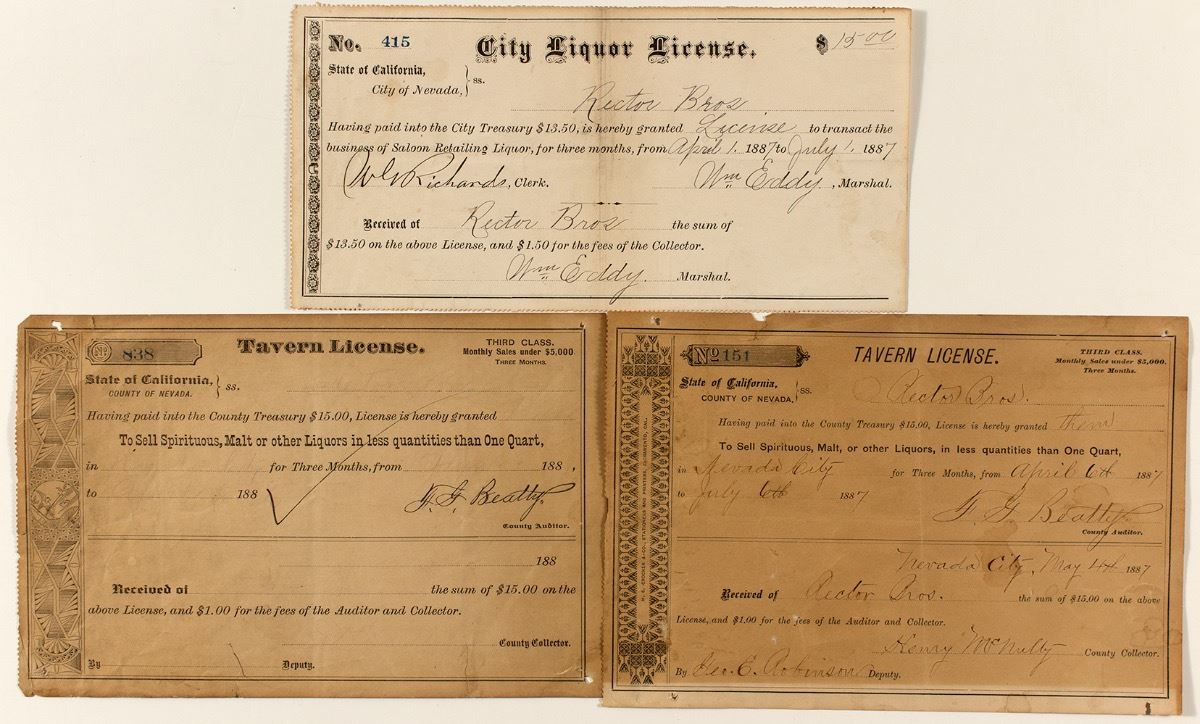 No. 415 City Liquor License. $ 15.00
State of California,
City of Nevada, } ss.
Rector Bros
Having paid into the City Treasury $13.50, is hereby granted License to transact the
business of Saloon Retailing Liquor, for three months, from April 1. 1887 to July 1. 1887
W G Richards, Clerk. Wm Eddy, Marshal.
Received of Rector Bros the sum of
$13.50 on the above License, and $1.50 for the fees of the Collector.
Wm Eddy. Marshal.
No 838 Tavern License. THIRD CLASS.
Monthly Sales under $5,000
THREE MONTHS.
State of California,
COUNTY OF NEVADA. } ss.
Having paid into the County Treasury $15.00, License is hereby granted
To Sell Spirituous, Malt or other Liquors in less quantities than One Quart,
in for Three Months, from 188 ,
to 188
F. G. Beatty
County Auditor.
188
Received of the sum of $15.00 on the
above License, and $1.00 for the fees of the Auditor and Collector.
County Collector.
By Deputy.
No 151 TAVERN LICENSE. THIRD CLASS.
Monthly Sales under $5,000.
Three Months.
State of California,
COUNTY OF NEVADA. } ss.
Rector Bros.
Having paid into the County Treasury $15.00, License is hereby granted them
To Sell Spirituous, Malt, or other Liquors, in less quantities than One Quart,
in Nevada City for Three Months, from April 6th 1887
to July 6th 1887
F. G. Beatty
County Auditor.
Nevada City, May 4th 1887
Received of Rector Bros. the sum of $15.00 on the above
License, and $1.00 for the fees of the Auditor and Collector.
Henry McNulty County Collector.
By Geo. E. Robinson Deputy.